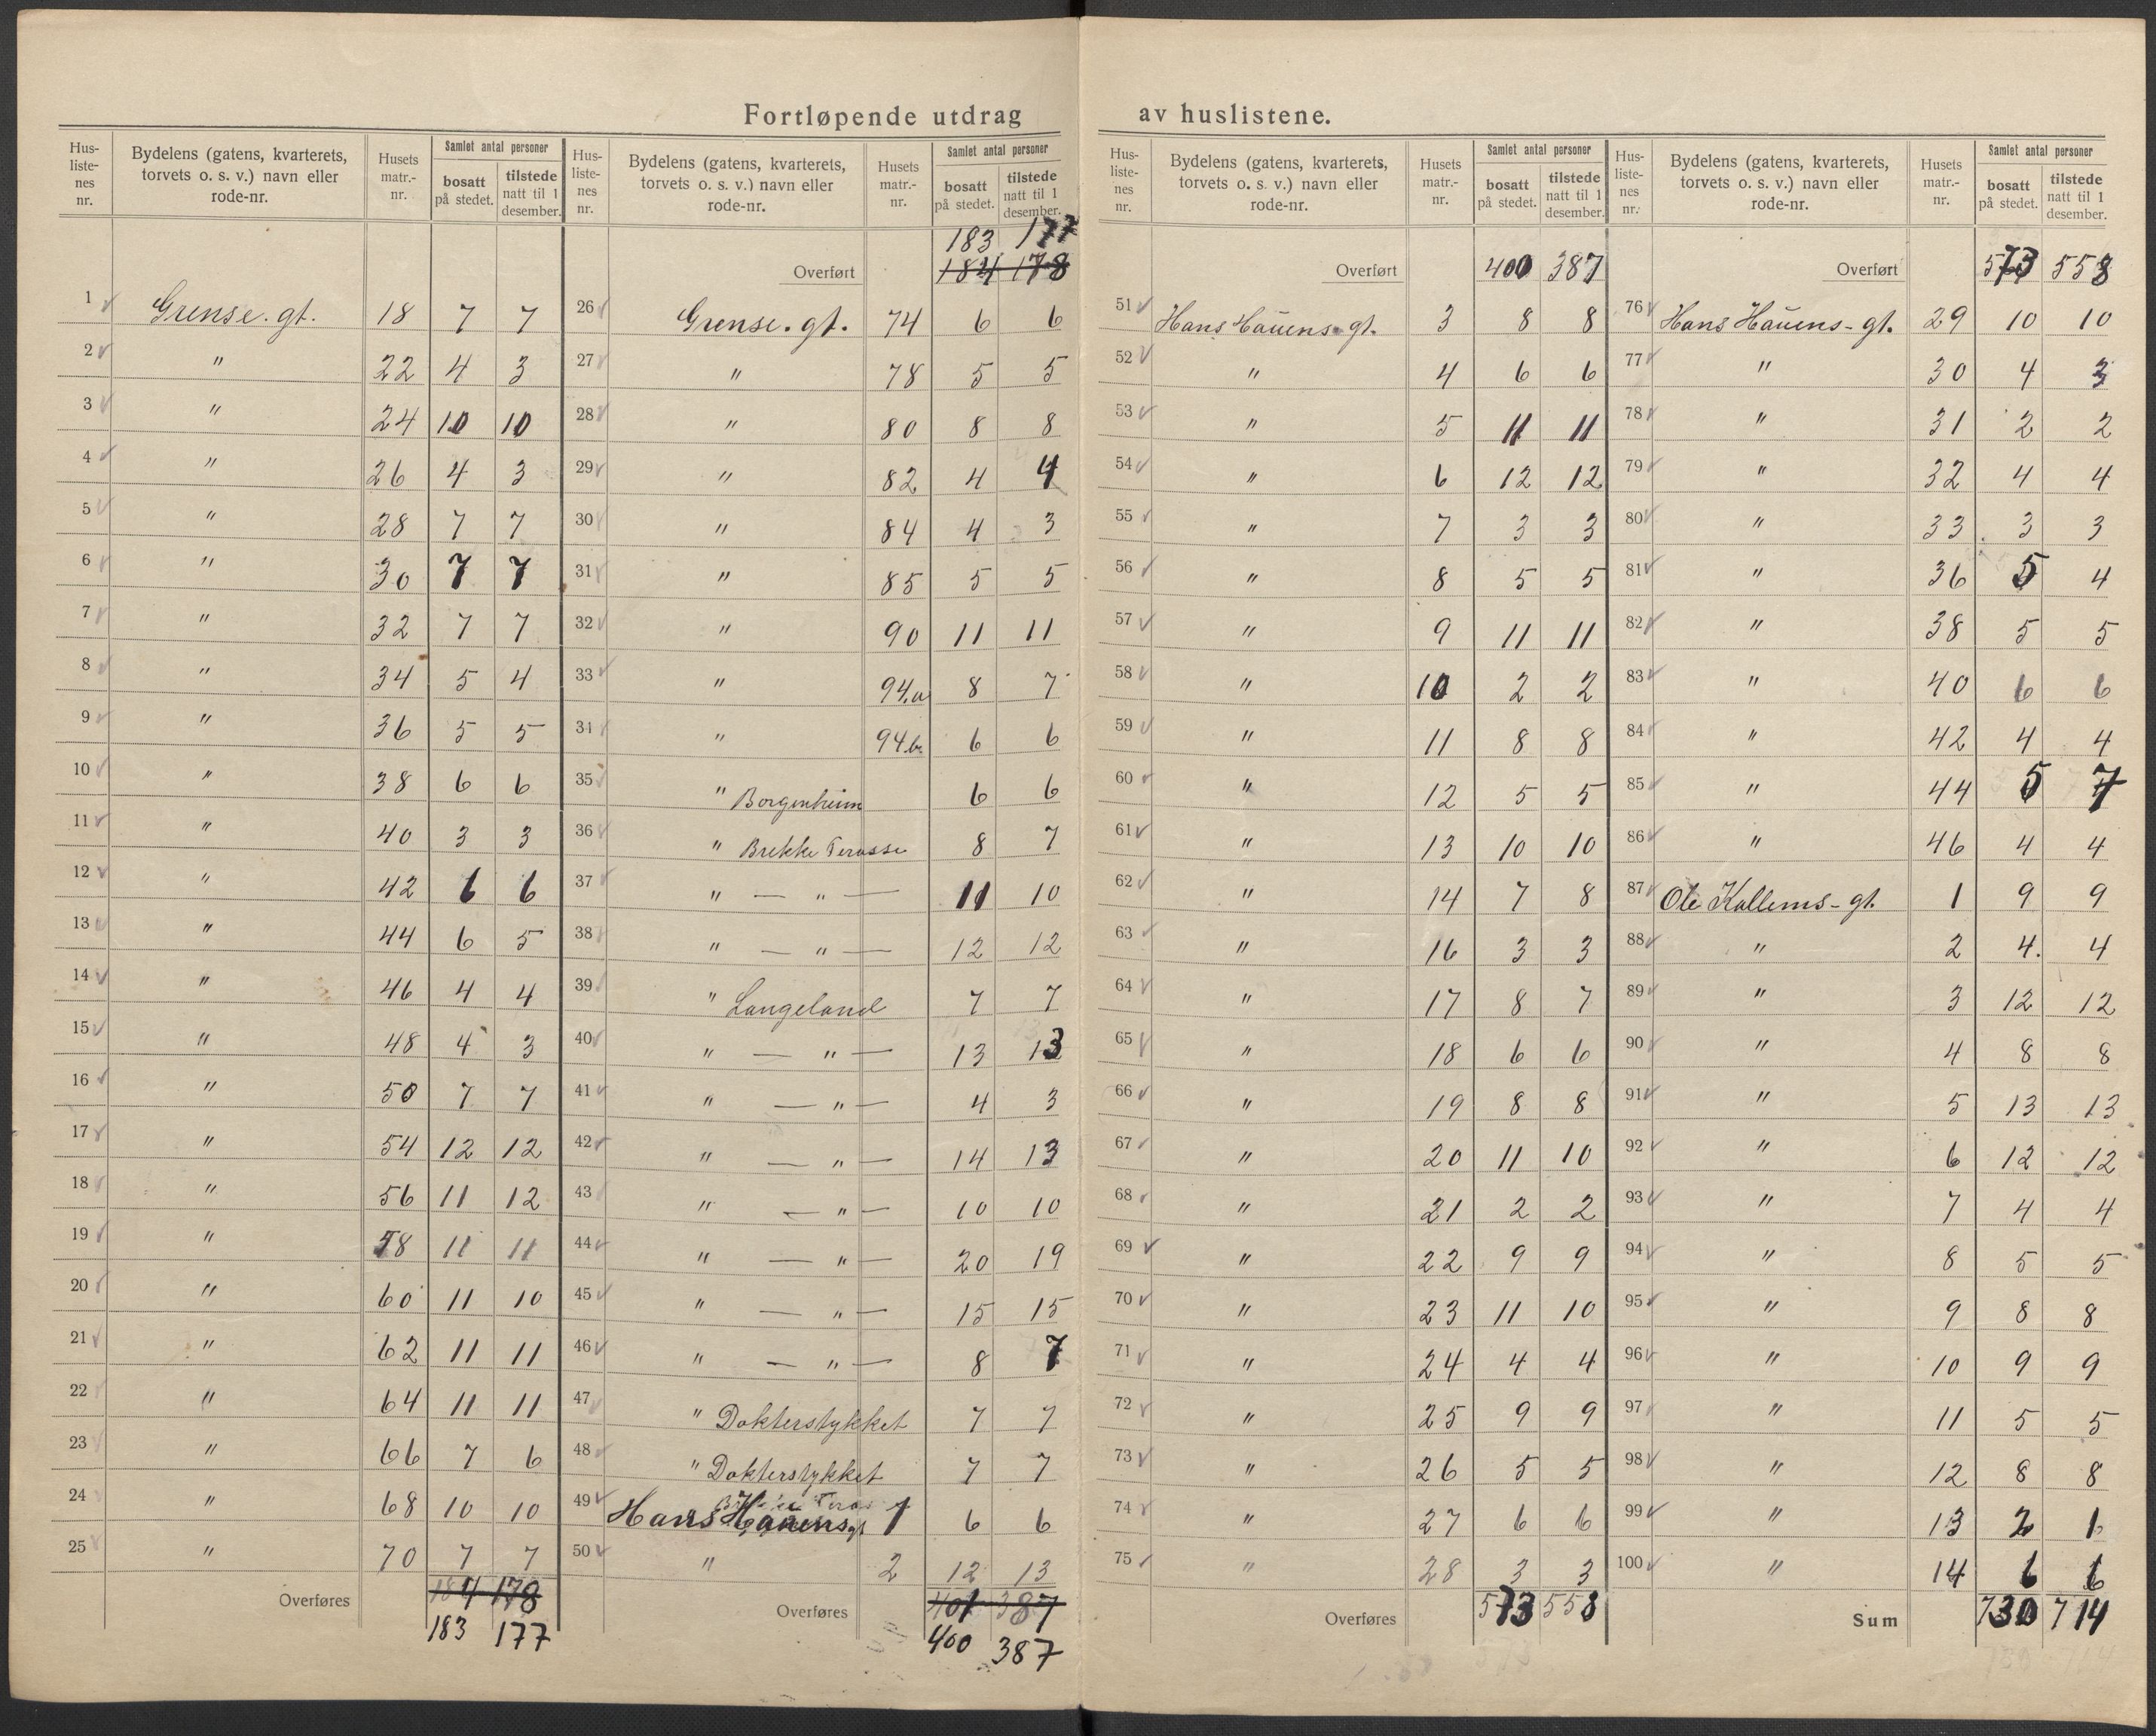 Fortløpende utdrag av huslistene.
Hus-liste-nes nr. | Bydelens (gatens, kvarterets, torvets o. s. v.) navn eller rode-nr. | Husets matr.-nr. | Samlet antal personer bosatt på stedet. | tilstede natt til 1 desember.
1 Grense.gt. 18 7 7
2 " 22 4 3
3 " 24 10 10
4 " 26 4 3
5 " 28 7 7
6 " 30 7 7
7 " 32 7 7
8 " 34 5 4
9 " 36 5 5
10 " 38 6 6
11 " 40 3 3
12 " 42 6 6
13 " 44 6 5
14 " 46 4 4
15 " 48 4 3
16 " 50 7 7
17 " 54 12 12
18 " 56 11 12
19 " 58 11 11
20 " 60 11 10
21 " 62 11 11
22 " 64 11 11
23 " 66 7 6
24 " 68 10 10
25 " 70 7 7
Overføres 184 178
183 177
Hus-liste-nes nr. | Bydelens (gatens, kvarterets, torvets o. s. v.) navn eller rode-nr. | Husets matr.-nr. | Samlet antal personer bosatt på stedet. | tilstede natt til 1 desember.
183 177
Overført 184 178
26 Grense.gt. 74 6 6
27 " 78 5 5
28 " 80 8 8
29 " 82 4 4
30 " 84 4 3
31 " 85 5 5
32 " 90 11 11
33 " 94.a 8 7
34 " 94.b. 6 6
35 " Borgenheim 6 6
36 " Brekke Terasse 8 7
37 " — " — 11 10
38 " — " — 12 12
39 " Langeland 7 7
40 " — " — 13 13
41 " — " — 4 3
42 " — " — 14 13
43 " — " — 10 10
44 " — " — 20 19
45 " — " — 15 15
46 " — " — 8 7
47 " Dokterstykket 7 7
48 " Dokterstykket 7 7
49 Hans Hauensgt 1 6 6
50 " 2 12 13
Overføres 401 387
400 387
Hus-liste-nes nr. | Bydelens (gatens, kvarterets, torvets o. s. v.) navn eller rode-nr. | Husets matr.-nr. | Samlet antal personer bosatt på stedet. | tilstede natt til 1 desember.
Overført 400 387
51 Hans Hauens-gt. 3 8 8
52 " 4 6 6
53 " 5 11 11
54 " 6 12 12
55 " 7 3 3
56 " 8 5 5
57 " 9 11 11
58 " 10 2 2
59 " 11 8 8
60 " 12 5 5
61 " 13 10 10
62 " 14 7 8
63 " 16 3 3
64 " 17 8 7
65 " 18 6 6
66 " 19 8 8
67 " 20 11 10
68 " 21 2 2
69 " 22 9 9
70 " 23 11 10
71 " 24 4 4
72 " 25 9 9
73 " 26 5 5
74 " 27 6 6
75 " 28 3 3
Overføres 573 558
Hus-liste-nes nr. | Bydelens (gatens, kvarterets, torvets o. s. v.) navn eller rode-nr. | Husets matr.-nr. | Samlet antal personer bosatt på stedet. | tilstede natt til 1 desember.
Overført 573 558
76 Hans Hauens-gt. 29 10 10
77 " 30 4 3
78 " 31 2 2
79 " 32 4 4
80 " 33 3 3
81 " 36 5 4
82 " 38 5 5
83 " 40 6 6
84 " 42 4 4
85 " 44 5 7
86 " 46 4 4
87 Ole Kallems-gt. 1 9 9
88 " 2 4. 4
89 " 3 12 12
90 " 4 8 8
91 " 5 13 13
92 " 6 12 12
93 " 7 4 4
94 " 8 5 5
95 " 9 8 8
96 " 10 9 9
97 " 11 5 5
98 " 12 8 8
99 " 13 2 1
100 " 14 6 6
Sum 730 714